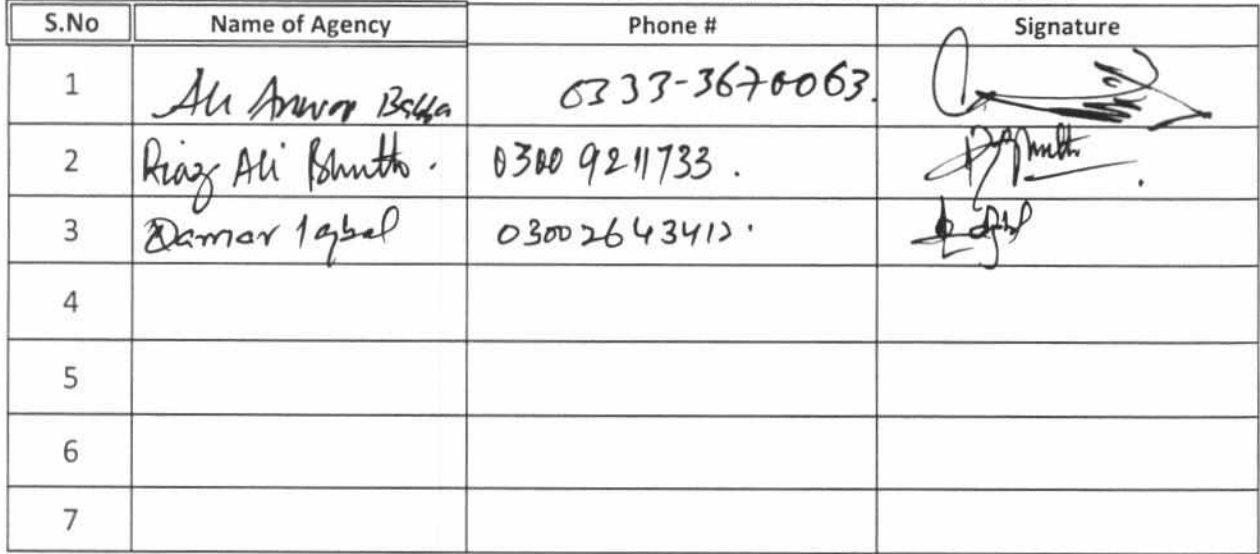 S.No Name of Agency Phone # Signature
1 Ali Anwar 0333-3670063.
2 Riaz Ali Bhutto. 0300 9211733.
3 Qamar Iqbal 03002643412.
4
5
6
7